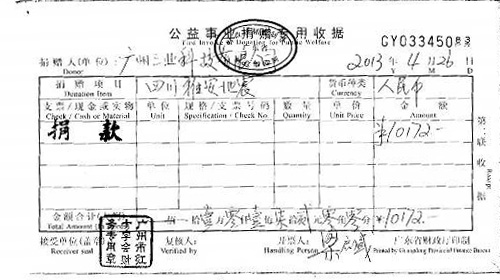 公益事业捐赠专用收据
Unif Invoice of Donating for Public Welfare
GY033450
捐赠人(单位): 广州三业科技有限公司 2013年4月26日
Donor Y M D
捐赠项目 四川雅安地震 货币种类 人民币
Donation Item Currency
支票/现金或实物 单位 规格/支票号码 数量 单价 金额
Check / Cash or Material Unit Specification - Check No Quantity Unit Price Amount
捐款 ¥10172-
第二联 收据
Receipt
金额合计(大写) 拾壹万零仟壹佰柒拾贰元零角零分 ¥10172-
Total Amount
接受单位(盖章) 复核人: 开票人: 广东省财政厅印制
Receiver seal Verified by Handling Person Printed by Guangdong Provincial Finance Depart
广州市红十字会财务专用章